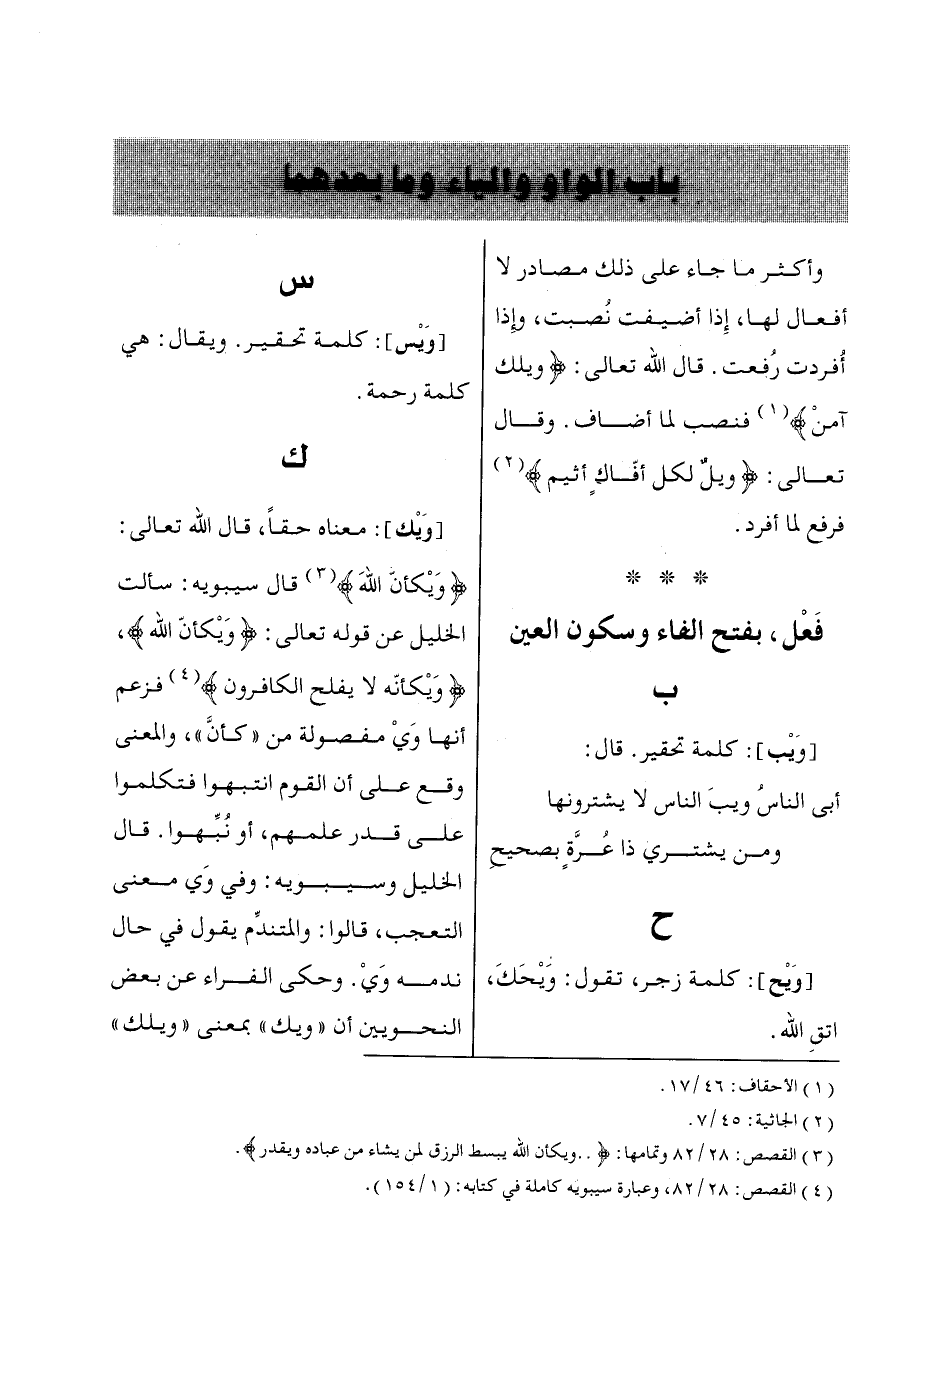 باب الواو والياء وما بعدهما
وأكثر ما جاء على ذلك مصادر لا
أفعال لها، إذا أضيفت نُصبت، وإذا
أُفردت رُفعت. قال الله تعالى: ﴿ ويلك
آمنْ ﴾(١) فنصب لما أضاف. وقال
تعالى: ﴿ ويلٌ لكل أفّاكٍ أثيم ﴾(٢)
فرفع لما أفرد.
* * *
فَعْل، بفتح الفاء وسكون العين
ب
[وَيْب]: كلمة تحقير. قال:
أبى الناسُ ويبَ الناس لا يشترونها
ومن يشتري ذا عُرَّةٍ بصحيحِ
ح
[وَيْح]: كلمة زجر، تقول: وَيْحَكَ،
اتقِ الله.
س
[وَيْس]: كلمة تحقير. ويقال: هي
كلمة رحمة.
ك
[وَيْك]: معناه حقاً، قال الله تعالى:
﴿ وَيْكأنّ اللهَ ﴾(٣) قال سيبويه: سألت
الخليل عن قوله تعالى: ﴿ وَيْكأنّ الله ﴾،
﴿ وَيْكأنّه لا يفلح الكافرون ﴾(٤) فزعم
أنها وَيْ مفصولة من «كأنَّ»، والمعنى
وقع على أن القوم انتبهوا فتكلموا
على قدر علمهم، أو نُبِّهوا. قال
الخليل وسيبويه: وفي وَي معنى
التعجب، قالوا: والمتندِّم يقول في حال
ندمه وَيْ. وحكى الفراء عن بعض
النحويين أن «ويك» بمعنى «ويلك»
(١) الأحقاف: ٤٦/ ١٧.
(٢) الجاثية: ٤٥/ ٧.
(٣) القصص: ٢٨/ ٨٢ وتمامها: ﴿ ..ويكأن الله يبسط الرزق لمن يشاء من عباده ويقدر ﴾.
(٤) القصص: ٢٨/ ٨٢، وعبارة سيبويه كاملة في كتابه: (١/ ١٥٤).